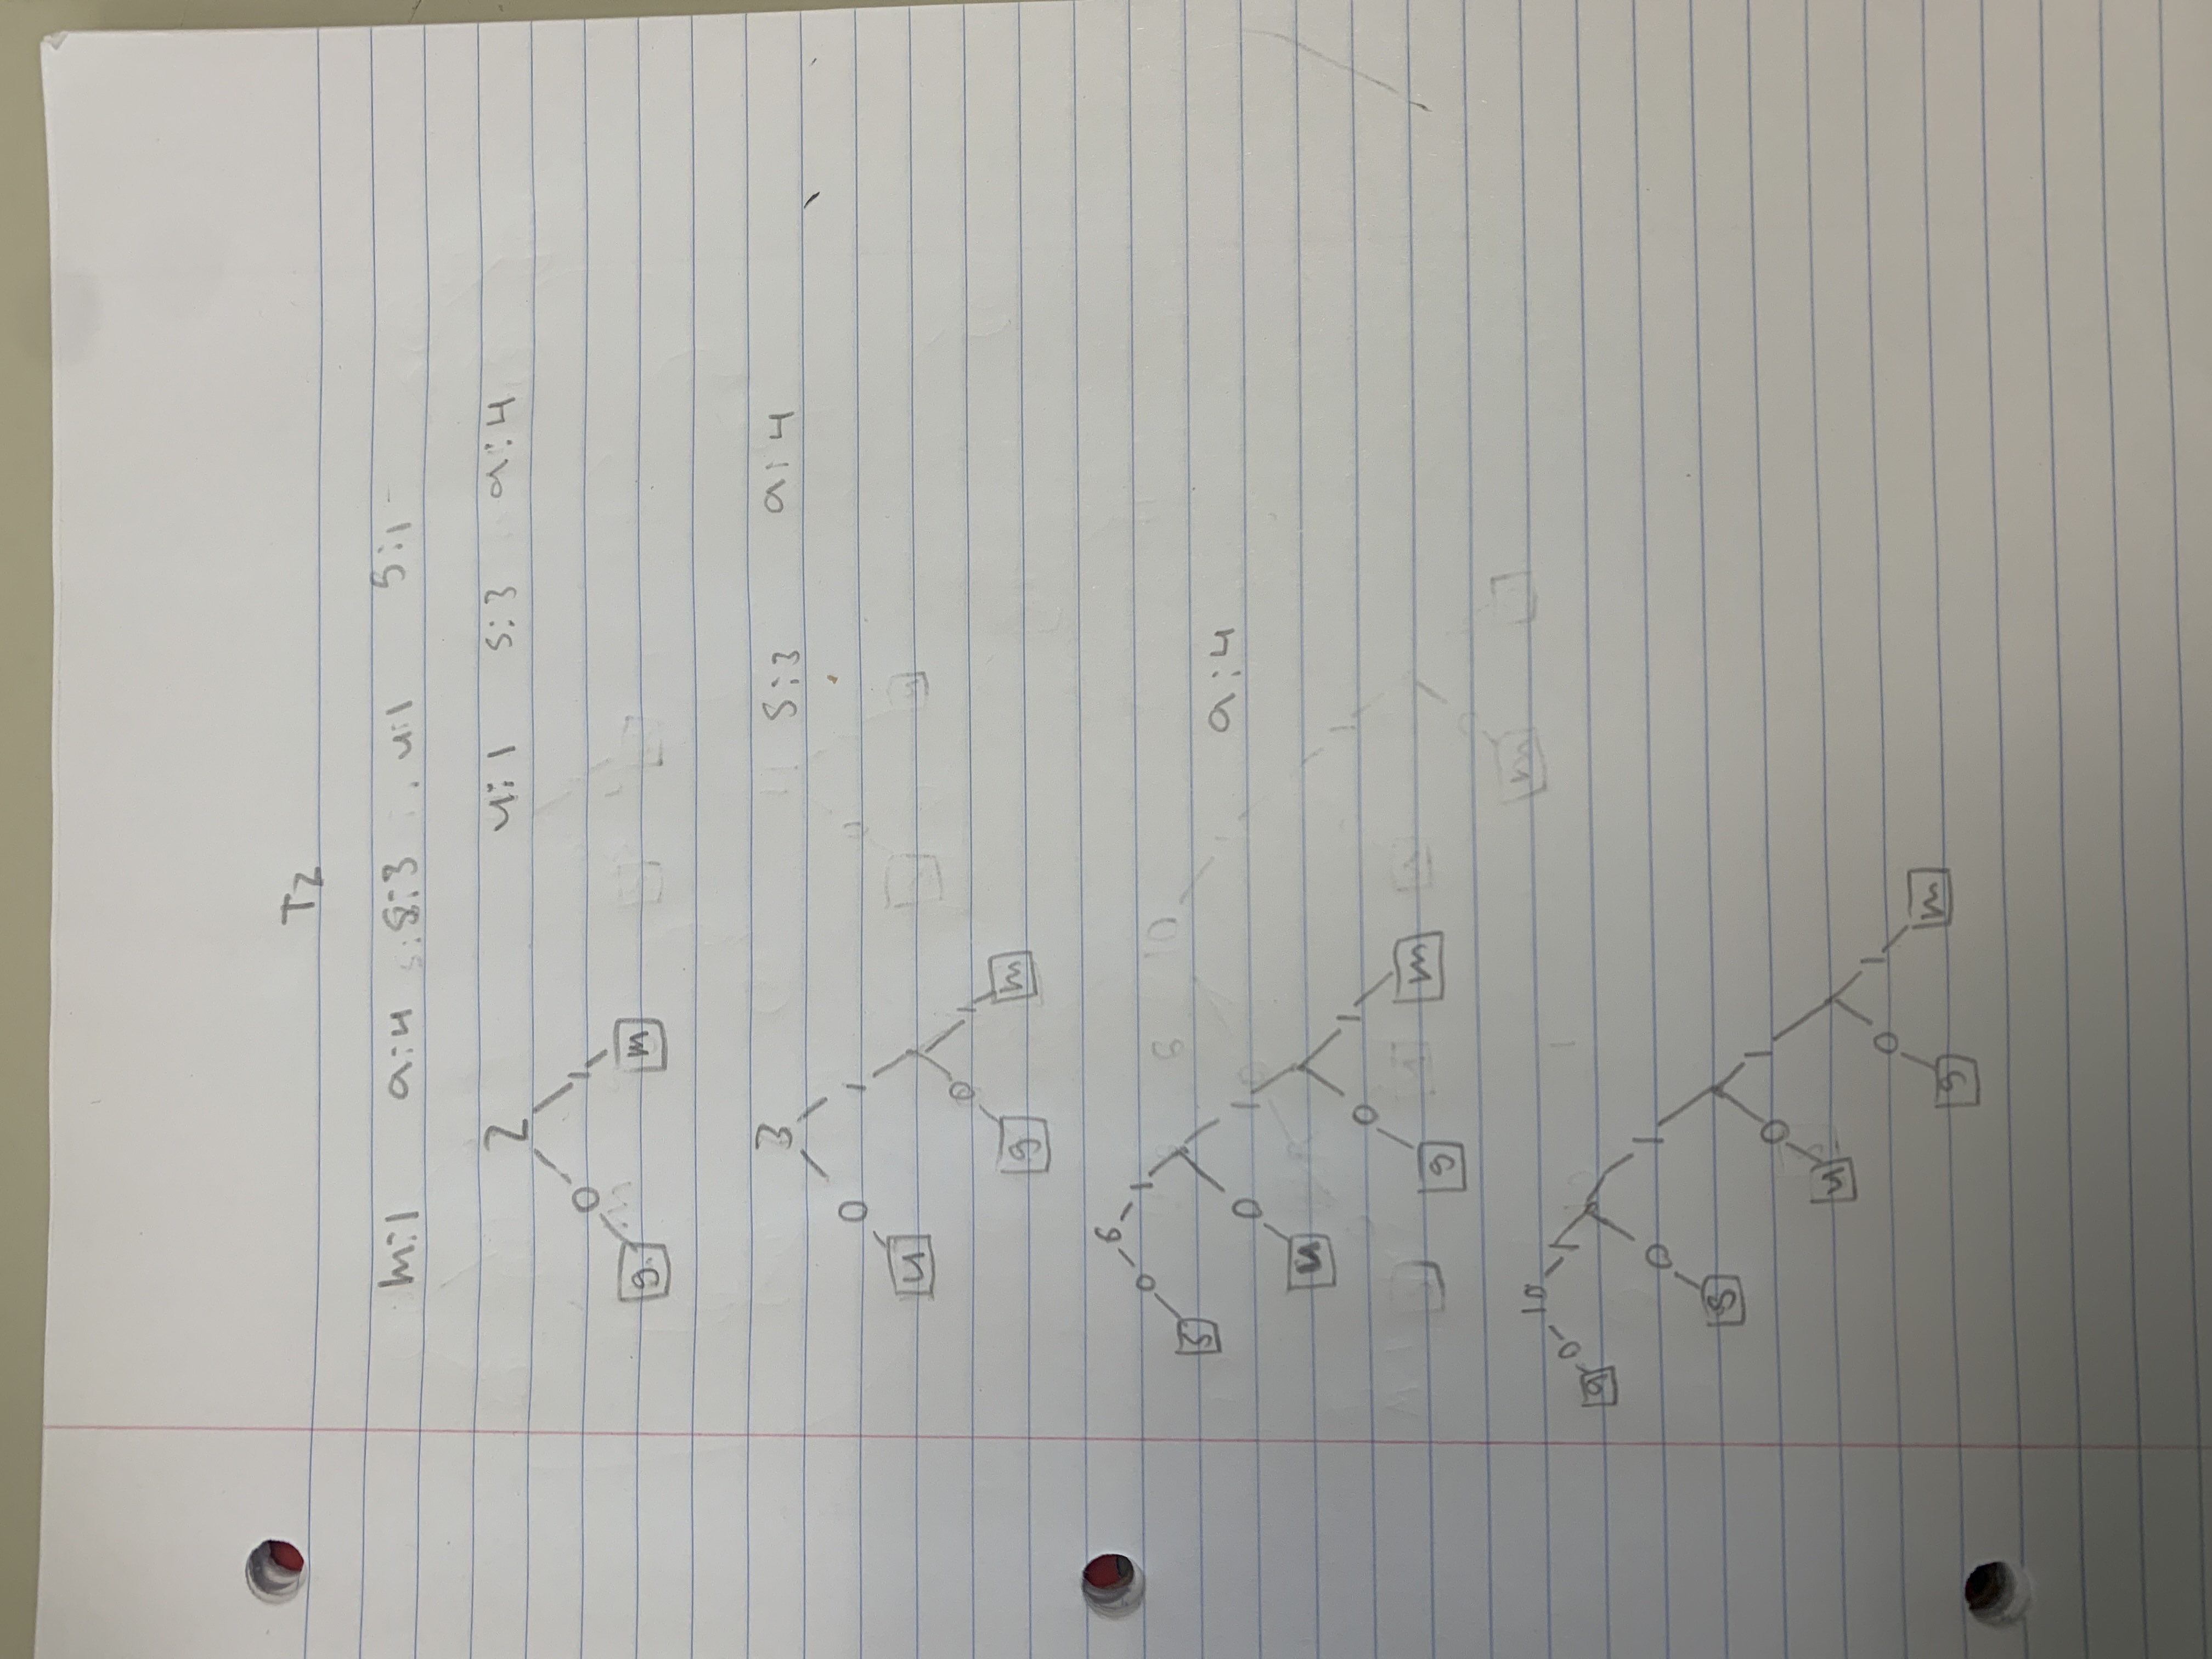 T2
m:1 a:4 s:3 u:1 g:1
2 u:1 s:3 a:4
0 1
g m
3 s:3 a:4
0 1
u
0 1
g m
6
0 1
s
a:4
0 1
u
0 1
g m
10
0 1
a
0 1
s
0 1
u
0 1
g m